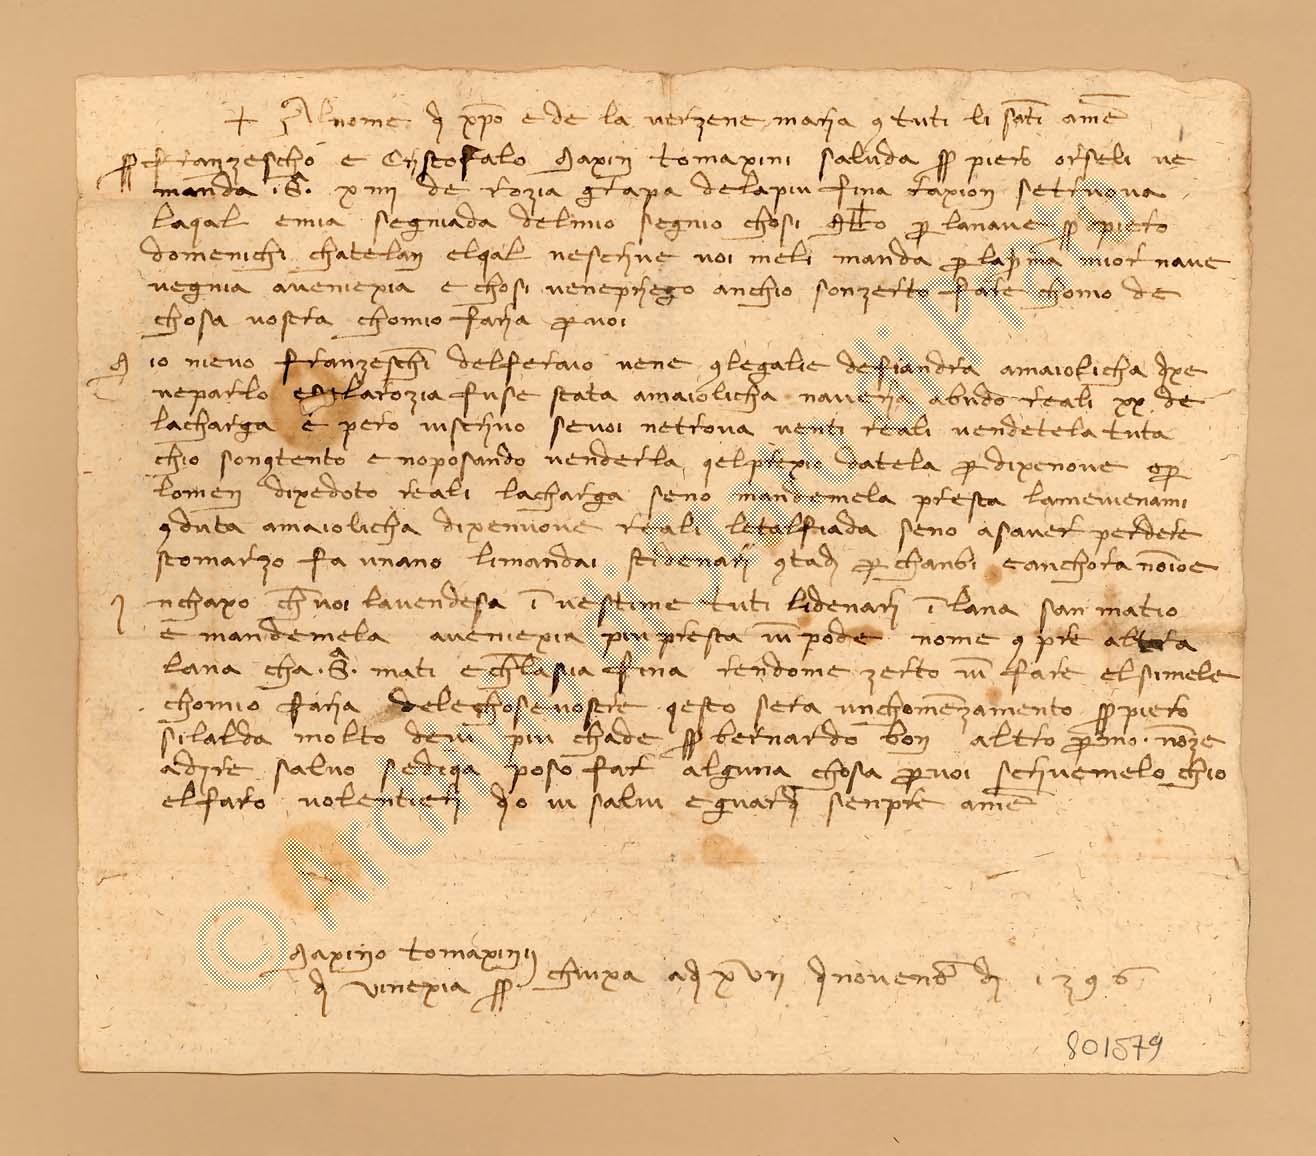 + Al nome d xpo e de la verzene maria 9 tuti li santi ame
Franzescho e Cristofalo Maxin tomaxini saluda piero orseli ve
manda .S. xiiii de rozia grapa dela piu fina raxion se trvova
la qal e mia segniada del mio segnio chosi p la nave piero
domenichi chatelan el qal ve scrive voi me li manda p la prima mior nave
vegnia a veniexia e chosi ve ne priego anchio son zerto fare chomo de
chosa vostra chomio faria p voi
io nievo franzescho del feraio vene 9 le galie de fiandra a maiolicha dixe
ve parlo e se la rozia fuse stata a maiolicha n averia abudo reali xx de
la charga e pero vi scrivo se voi ne trova venti reali vendetela tuta
chio son 9tento e no posando venderla qel prexio datela p dixenove
lo men dixedoto reali la charga se no mandemela presta la me viena mi
9duta a maiolicha dixenuove reali le tal fiada seno a saver perdere
sto marzo fa un ano li mandai sti denari 9tadi p chanbi e anchora no io e
nchapo che voi la vendesa i vestime tuti li denari i lana san matio
e mandemela a veniexia piu presta vui pode no me 9pre altra
lana cha .S. mati e che la sia fina rendome zerto vui fare el simele
chomio faria dele chose vostre qesto sera un chomenzamento piero
si lalda molto de vui piu cha de bernardo bon altro p mo no ze
a dire salvo se di qa poso far alguna chosa p voi scrivemelo chio
el faro volentieri dio vi salvi e guardi senpre ame
Maxino tomaxini
d vinexia chiuxa adi xvii d novenb di 1396
801579
© Archivio di Stato di Prato